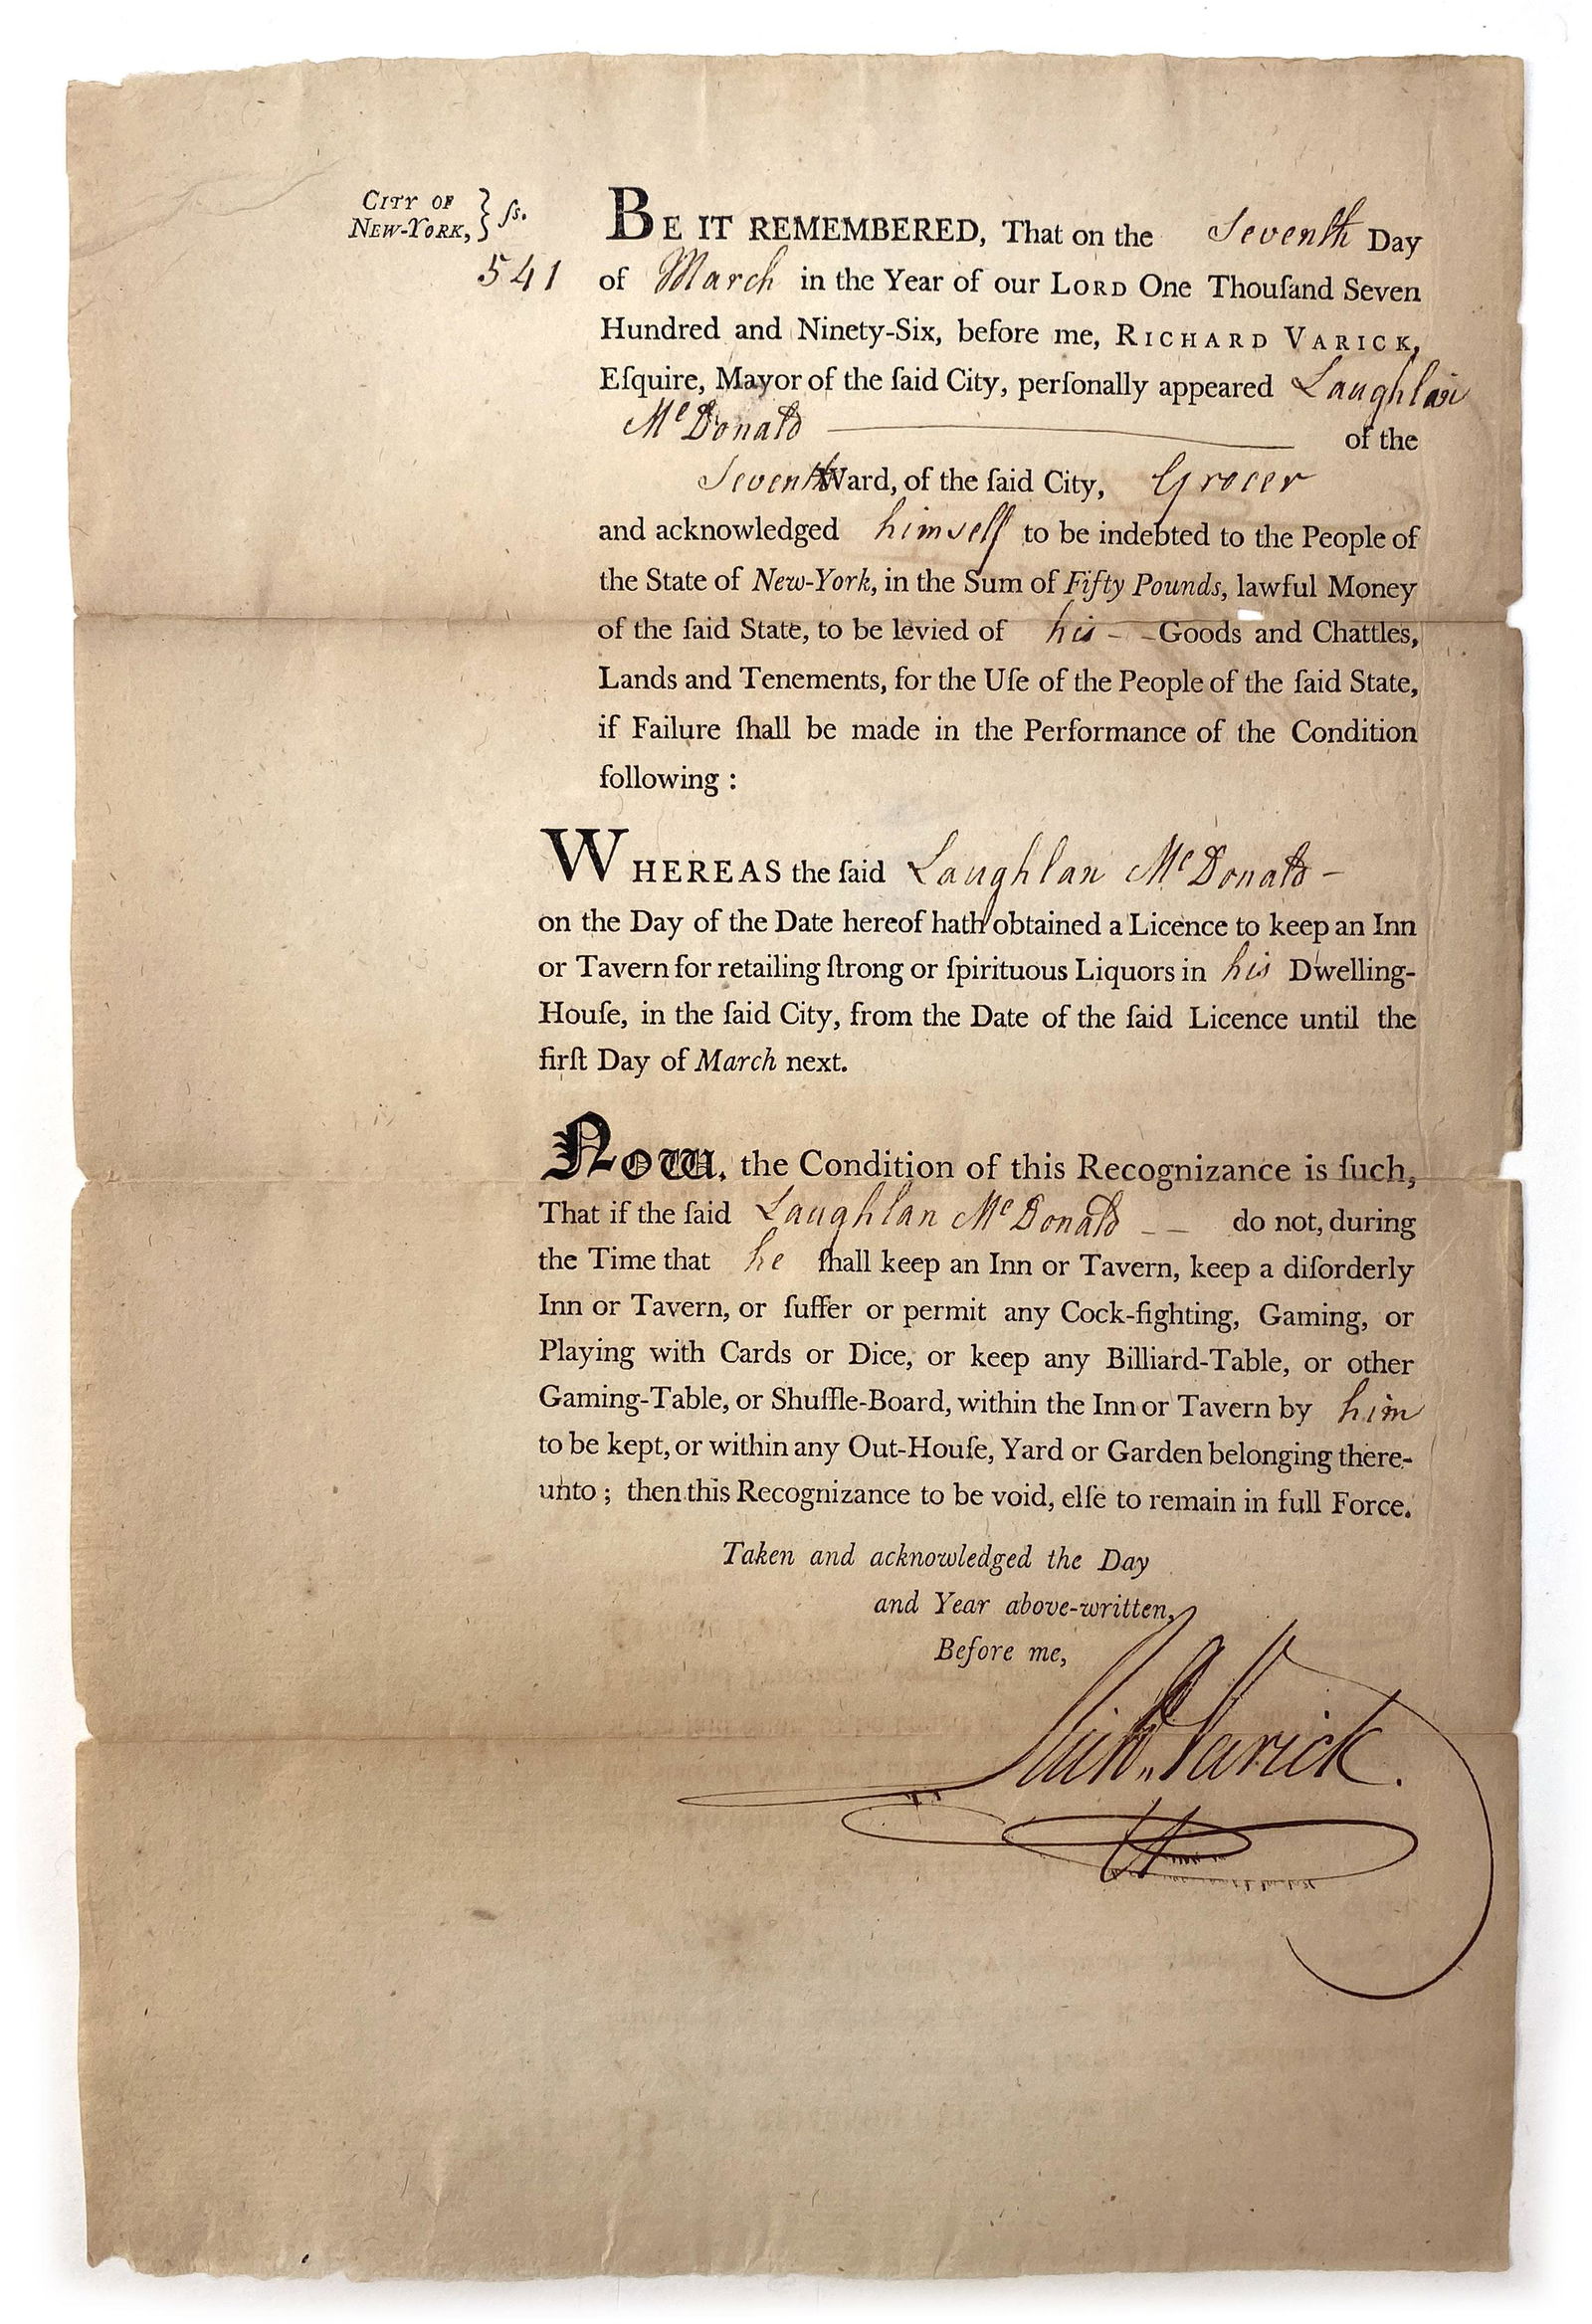 CITY OF
NEW-YORK, } ſs.
541
BE IT REMEMBERED, That on the Seventh Day
of March in the Year of our LORD One Thouſand Seven
Hundred and Ninety-Six, before me, RICHARD VARICK,
Eſquire, Mayor of the ſaid City, perſonally appeared Laughlan
McDonald of the
Seventh Ward, of the ſaid City, Grocer
and acknowledged himself to be indebted to the People of
the State of New-York, in the Sum of Fifty Pounds, lawful Money
of the ſaid State, to be levied of his - - Goods and Chattles,
Lands and Tenements, for the Uſe of the People of the ſaid State,
if Failure ſhall be made in the Performance of the Condition
following :
WHEREAS the ſaid Laughlan McDonald -
on the Day of the Date hereof hath obtained a Licence to keep an Inn
or Tavern for retailing ſtrong or ſpirituous Liquors in his Dwelling-
Houſe, in the ſaid City, from the Date of the ſaid Licence until the
firſt Day of March next.
Now, the Condition of this Recognizance is ſuch,
That if the ſaid Laughlan McDonald - - do not, during
the Time that he ſhall keep an Inn or Tavern, keep a diſorderly
Inn or Tavern, or ſuffer or permit any Cock-fighting, Gaming, or
Playing with Cards or Dice, or keep any Billiard-Table, or other
Gaming-Table, or Shuffle-Board, within the Inn or Tavern by him
to be kept, or within any Out-Houſe, Yard or Garden belonging there-
unto ; then this Recognizance to be void, elſe to remain in full Force.
Taken and acknowledged the Day
and Year above-written,
Before me,
Richd. Varick.